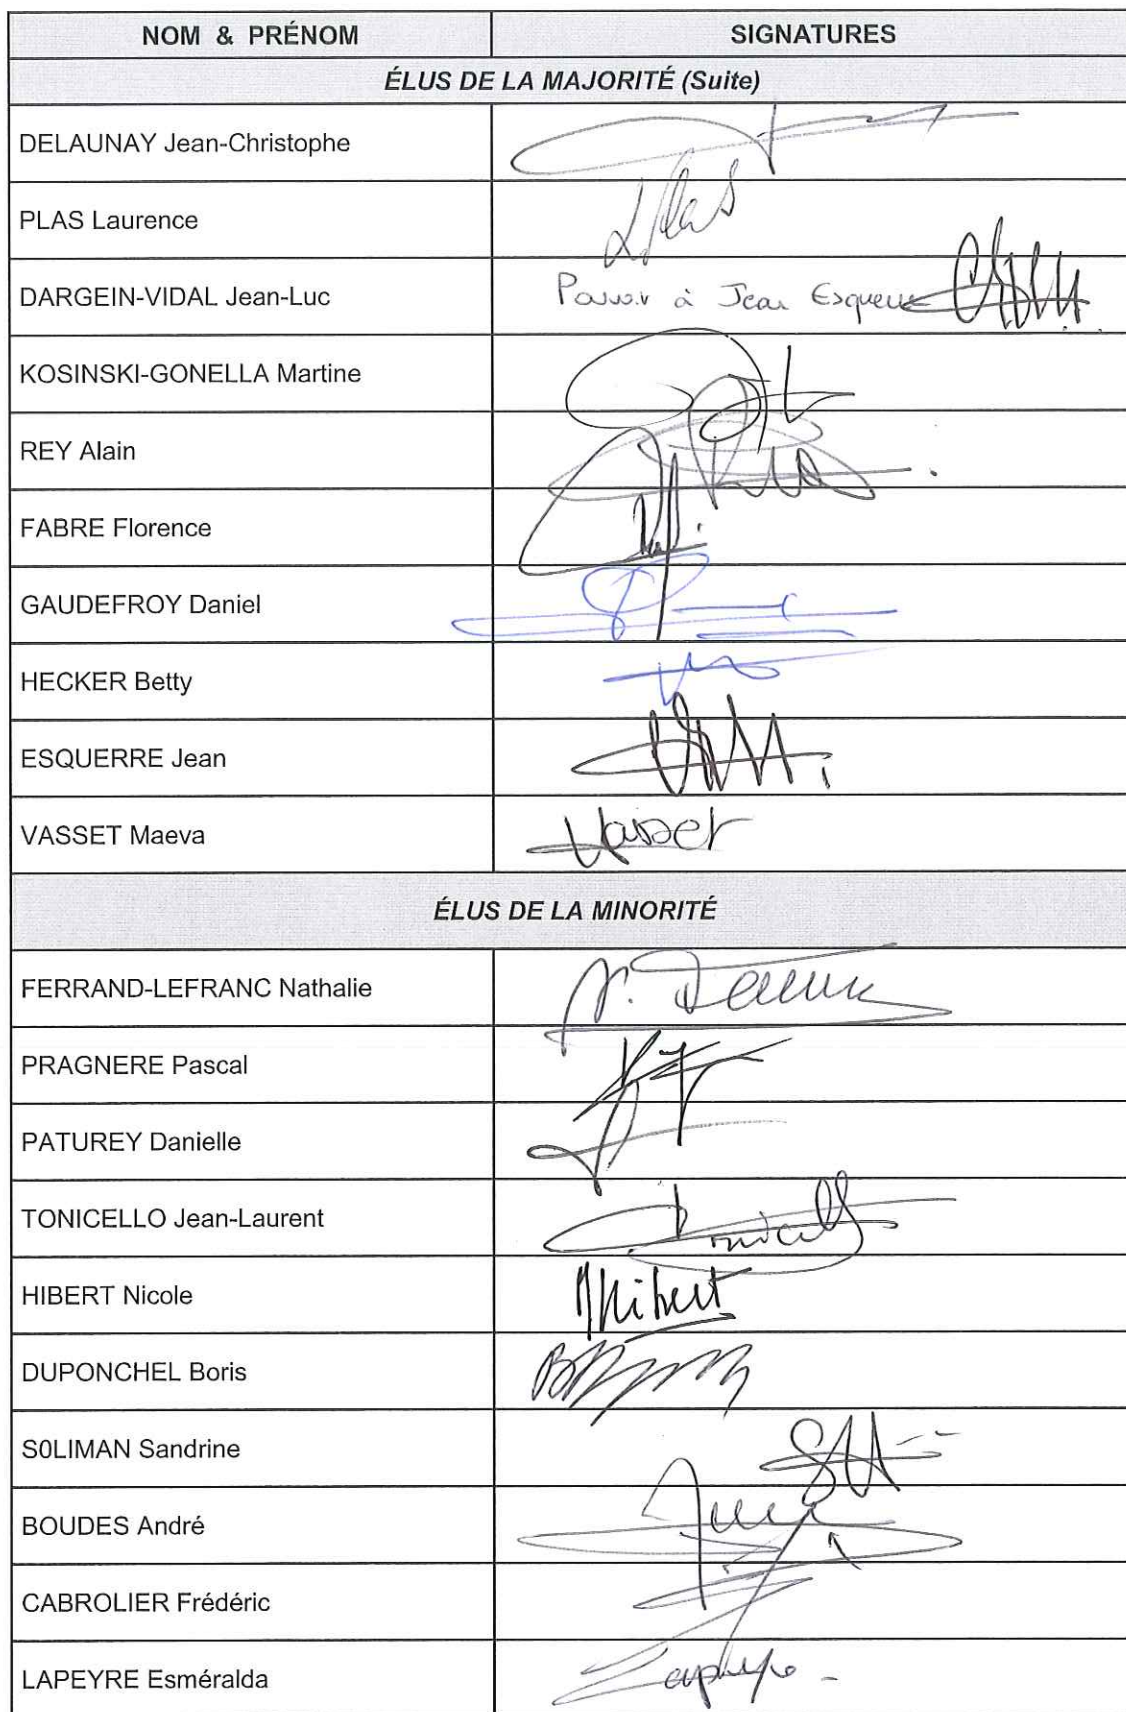 NOM & PRÉNOM SIGNATURES
ÉLUS DE LA MAJORITÉ (Suite)
DELAUNAY Jean-Christophe
PLAS Laurence
DARGEIN-VIDAL Jean-Luc Pouvoir à Jean Esquerre
KOSINSKI-GONELLA Martine
REY Alain
FABRE Florence
GAUDEFROY Daniel
HECKER Betty
ESQUERRE Jean
VASSET Maeva Vasset
ÉLUS DE LA MINORITÉ
FERRAND-LEFRANC Nathalie
PRAGNERE Pascal
PATUREY Danielle
TONICELLO Jean-Laurent
HIBERT Nicole Hibert
DUPONCHEL Boris
S0LIMAN Sandrine
BOUDES André
CABROLIER Frédéric
LAPEYRE Esméralda